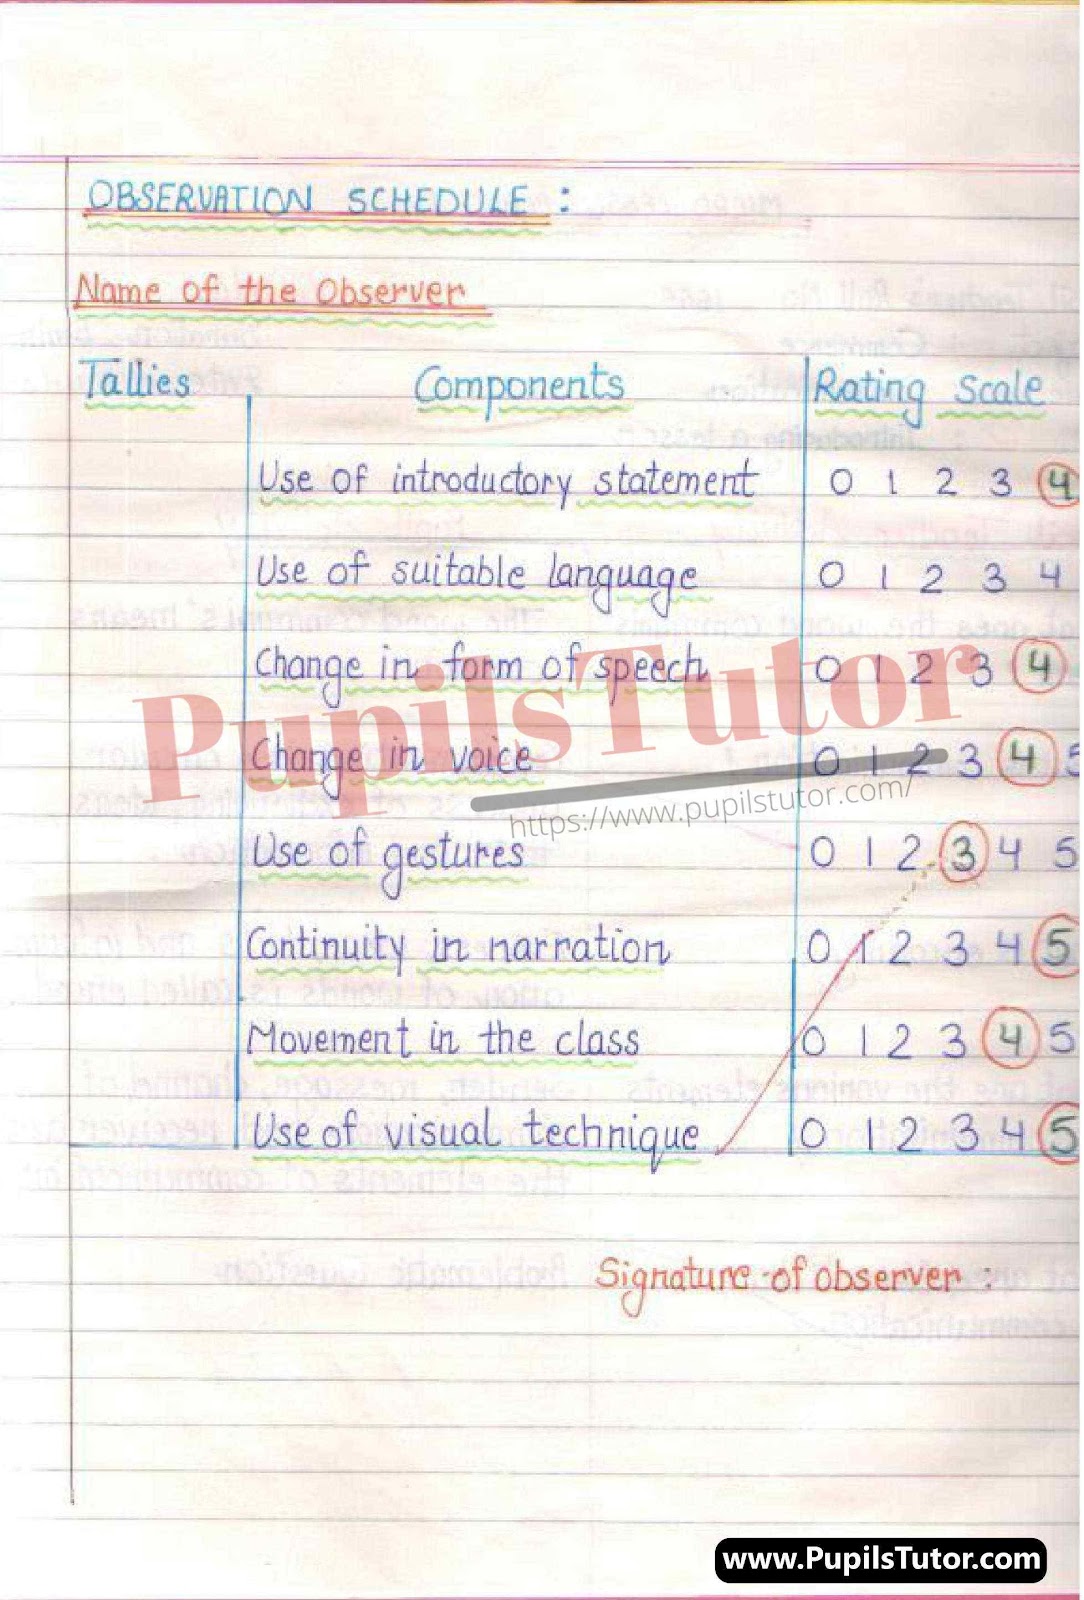 OBSERVATION SCHEDULE :
Name of the Observer
Tallies Components Rating Scale
Use of introductory statement 0 1 2 3 4
Use of suitable language 0 1 2 3 4
Change in form of speech 0 1 2 3 4
PupilsTutor
Change in voice 0 1 2 3 4 5
https://www.pupilstutor.com/
Use of gestures 0 1 2 3 4 5
Continuity in narration 0 1 2 3 4 5
Movement in the class 0 1 2 3 4 5
Use of visual technique 0 1 2 3 4 5
Signature of observer :
www.PupilsTutor.com